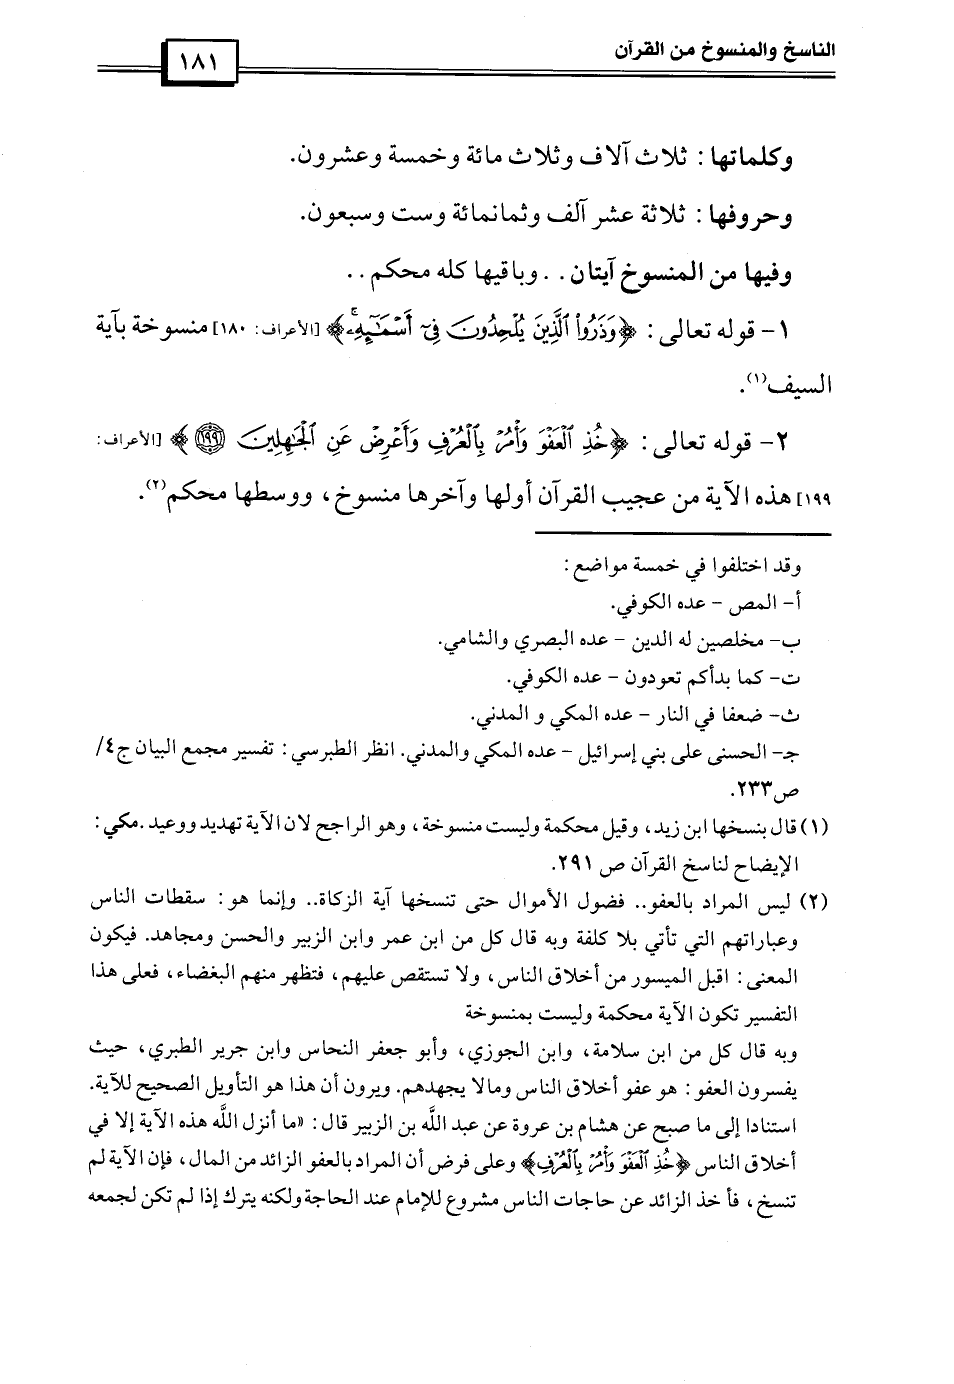 الناسخ والمنسوخ من القرآن
١٨١
وكلماتها : ثلاث آلاف وثلاث مائة وخمسة وعشرون.
وحروفها : ثلاثة عشر آلف وثمانمائة وست وسبعون.
وفيها من المنسوخ آيتان . . وباقيها كله محكم . .
١- قوله تعالى : ﴿وَذَرُوا۟ ٱلَّذِينَ يُلْحِدُونَ فِىٓ أَسْمَـٰٓئِهِۦۚ﴾ [الأعراف: ١٨٠] منسوخة بآية
السيف(١).
٢- قوله تعالى : ﴿خُذِ ٱلْعَفْوَ وَأْمُرْ بِٱلْعُرْفِ وَأَعْرِضْ عَنِ ٱلْجَـٰهِلِينَ ١٩٩﴾ [الأعراف:
١٩٩] هذه الآية من عجيب القرآن أولها وآخرها منسوخ، ووسطها محكم(٢).
وقد اختلفوا في خمسة مواضع :
أ- المص - عده الكوفي.
ب- مخلصين له الدين - عده البصري والشامي.
ت- كما بدأكم تعودون - عده الكوفي.
ث- ضعفا في النار - عده المكي و المدني.
جـ- الحسنى على بني إسرائيل - عده المكي والمدني. انظر الطبرسي : تفسير مجمع البيان ج٤/
ص٢٣٣.
(١) قال بنسخها ابن زيد، وقيل محكمة وليست منسوخة، وهو الراجح لان الآية تهديد ووعيد .مكي :
الإيضاح لناسخ القرآن ص ٢٩١.
(٢) ليس المراد بالعفو.. فضول الأموال حتى تنسخها آية الزكاة.. وإنما هو : سقطات الناس
وعباراتهم التي تأتي بلا كلفة وبه قال كل من ابن عمر وابن الزبير والحسن ومجاهد. فيكون
المعنى : اقبل الميسور من أخلاق الناس، ولا تستقص عليهم، فتظهر منهم البغضاء، فعلى هذا
التفسير تكون الآية محكمة وليست بمنسوخة
وبه قال كل من ابن سلامة، وابن الجوزي، وأبو جعفر النحاس وابن جرير الطبري، حيث
يفسرون العفو : هو عفو أخلاق الناس ومالا يجهدهم. ويرون أن هذا هو التأويل الصحيح للآية.
استنادا إلى ما صبح عن هشام بن عروة عن عبد اللَّه بن الزبير قال : «ما أنزل اللَّه هذه الآية إلا في
أخلاق الناس ﴿خُذِ ٱلْعَفْوَ وَأْمُرْ بِٱلْعُرْفِ﴾ وعلى فرض أن المراد بالعفو الزائد من المال، فإن الآية لم
تنسخ، فأخذ الزائد عن حاجات الناس مشروع للإمام عند الحاجة ولكنه يترك إذا لم تكن لجمعه